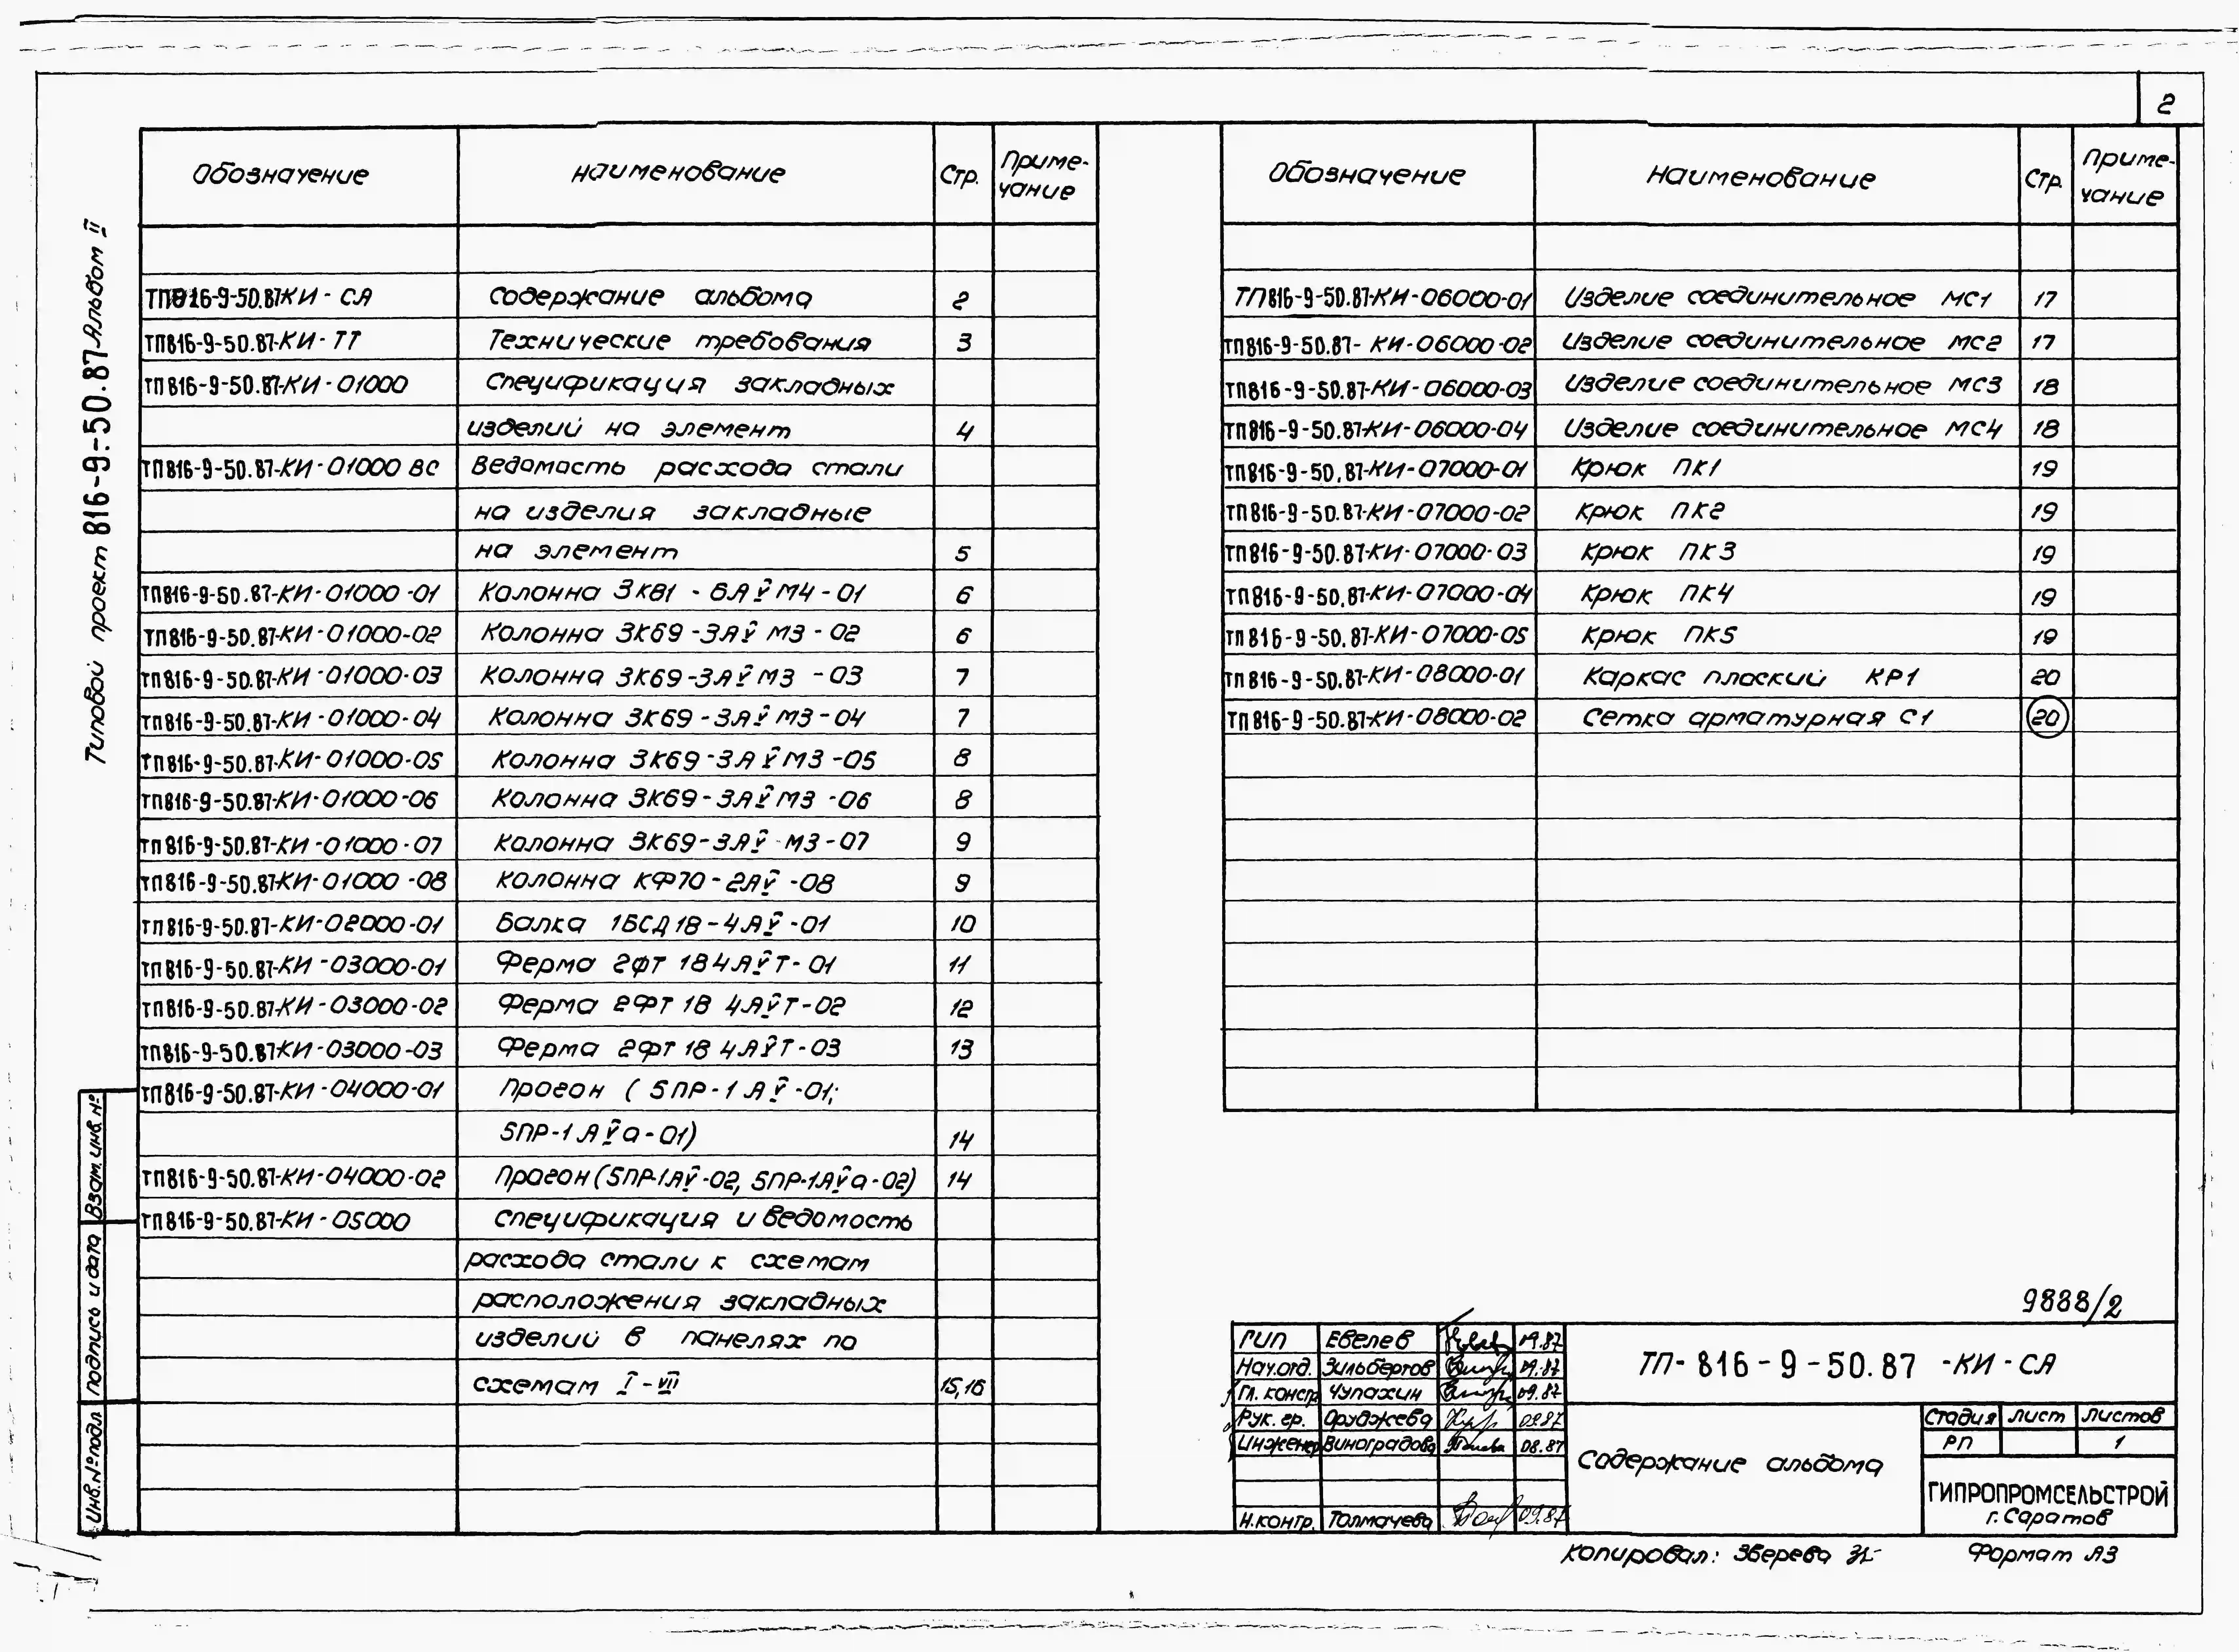 2
Типовой проект 816-9-50.87-Альбом II
Обозначение Наименование Стр. Приме-
чание
ТП816-9-50.87-КИ-СА Содержание альбома 2
ТП816-9-50.87-КИ-ТТ Технические требования 3
ТП816-9-50.87-КИ-01000 Спецификация закладных
изделий на элемент 4
ТП816-9-50.87-КИ-01000 ВС Ведомость расхода стали
на изделия закладные
на элемент 5
ТП816-9-50.87-КИ-01000-01 Колонна 3К81-6АV̄М4-01 6
ТП816-9-50.87-КИ-01000-02 Колонна 3К69-3АV̄М3-02 6
ТП816-9-50.87-КИ-01000-03 Колонна 3К69-3АV̄М3-03 7
ТП816-9-50.87-КИ-01000-04 Колонна 3К69-3АV̄М3-04 7
ТП816-9-50.87-КИ-01000-05 Колонна 3К69-3АV̄М3-05 8
ТП816-9-50.87-КИ-01000-06 Колонна 3К69-3АV̄М3-06 8
ТП816-9-50.87-КИ-01000-07 Колонна 3К69-3АV̄-М3-07 9
ТП816-9-50.87-КИ-01000-08 Колонна КФ70-2АV̄-08 9
ТП816-9-50.87-КИ-02000-01 Балка 1БСД18-4АV̄-01 10
ТП816-9-50.87-КИ-03000-01 Ферма 2ФТ 18 4АV̄Т-01 11
ТП816-9-50.87-КИ-03000-02 Ферма 2ФТ 18 4АV̄Т-02 12
ТП816-9-50.87-КИ-03000-03 Ферма 2ФТ 18 4АV̄Т-03 13
ТП816-9-50.87-КИ-04000-01 Прогон (5ПР-1АV̄-01;
5ПР-1АV̄а-01) 14
ТП816-9-50.87-КИ-04000-02 Прогон (5ПР-1АV̄-02, 5ПР-1АV̄а-02) 14
ТП816-9-50.87-КИ-05000 Спецификация и ведомость
расхода стали к схемам
расположения закладных
изделий в панелях по
схемам I-VII 15,16
Обозначение Наименование Стр. Приме-
чание
ТП816-9-50.87-КИ-06000-01 Изделие соединительное МС1 17
ТП816-9-50.87-КИ-06000-02 Изделие соединительное МС2 17
ТП816-9-50.87-КИ-06000-03 Изделие соединительное МС3 18
ТП816-9-50.87-КИ-06000-04 Изделие соединительное МС4 18
ТП816-9-50.87-КИ-07000-01 Крюк ПК1 19
ТП816-9-50.87-КИ-07000-02 Крюк ПК2 19
ТП816-9-50.87-КИ-07000-03 Крюк ПК3 19
ТП816-9-50.87-КИ-07000-04 Крюк ПК4 19
ТП816-9-50.87-КИ-07000-05 Крюк ПК5 19
ТП816-9-50.87-КИ-08000-01 Каркас плоский КР1 20
ТП816-9-50.87-КИ-08000-02 Сетка арматурная С1 20
Взам. инв. №
Подпись и дата
Инв. № подл
9888/2
ГИП Евелев 09.87
Нач.отд. Зильбертов 09.87
Гл. констр. Чупахин 09.87
Рук. гр. Оруджева 09.87
Инженер Виноградова 08.87
Н.контр. Толмачева 09.87
ТП-816-9-50.87-КИ-СА
Содержание альбома
Стадия Лист Листов
РП 1
ГИПРОПРОМСЕЛЬСТРОЙ
г. Саратов
Копировал: Зверева
Формат А3